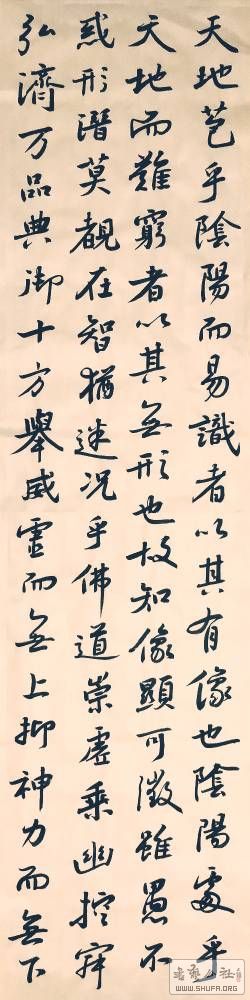 天地苞乎陰陽而易識者以其有像也陰陽處乎
天地而難窮者以其無形也故知像顯可徵雖愚不
惑形潛莫覩在智猶迷况乎佛道崇虛乘幽控寂
弘濟万品典御十方舉威靈而無上抑神力而無下
WWW.SHUFA.ORG